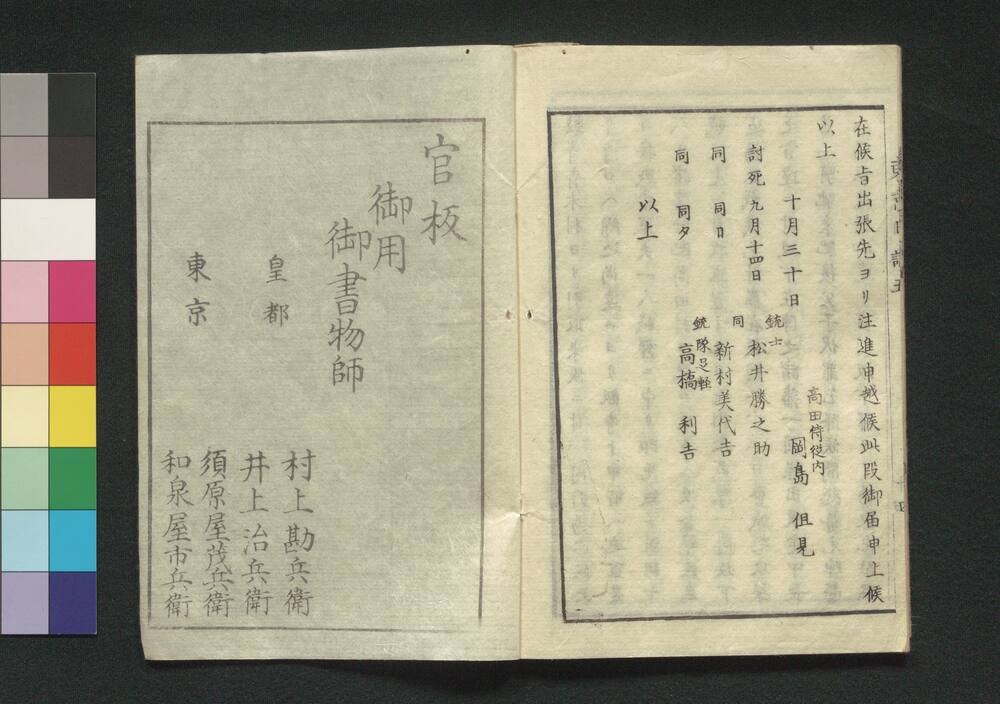 在候旨出張先ヨリ注進申越候此段御届申上候
以上
十月三十日
高田侍従内
岡島但見
討死九月十四日
銃士
松井勝之助
同 同日
同
新村美代吉
同 同夕
銃隊足軽
高橋利吉
以上
官板
御用
御書物師
皇都
村上勘兵衛
井上治兵衛
東京
須原屋茂兵衛
和泉屋市兵衛